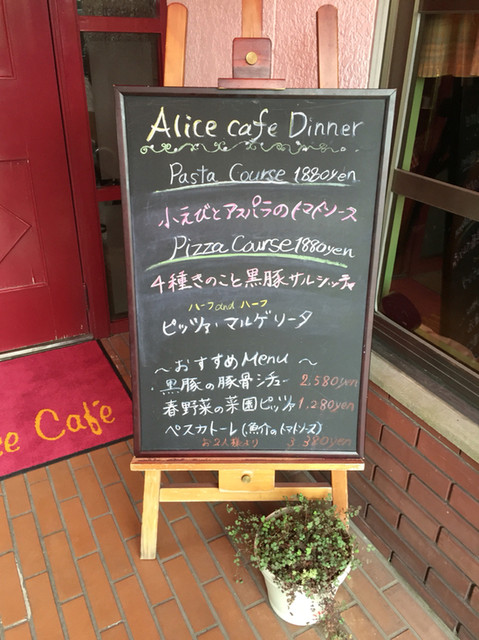 Alice cafe Dinner
Pasta Course 1880yen
小えびとアスパラのトマトソース
Pizza Course 1880yen
4種きのこと黒豚サルシッチャ
ハーフandハーフ
ピッツァ・マルゲリータ
～おすすめMenu～
・黒豚の豚骨シチュー 2,580yen
春野菜の菜園ピッツァ 1,280yen
ペスカトーレ(魚介のトマトソース)
お2人様より 3,380yen
ce Café